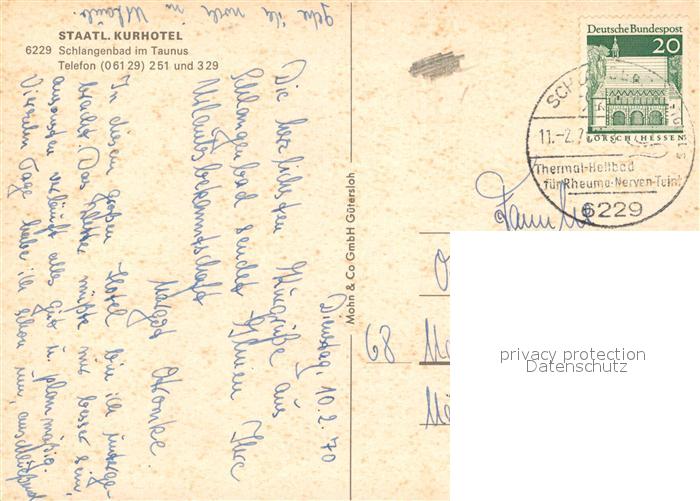 STAATL. KURHOTEL
6229 Schlangenbad im Taunus
Telefon (06129) 251 und 329
Dienstag, 10.2.70
Die herzlichsten Kurgrüße aus
Schlangenbad sendet Ihnen Ihre
Urlaubsbekanntschaft
Margot
In diesem großen Hotel bin ich unterge-
bracht. Das Wetter müßte nur besser sein,
ansonsten verläuft alles gut u. planmäßig.
Vierzehn Tage habe ich schon um, anschließend
gehe ich noch in Urlaub.
Mohn & Co GmbH Gütersloh
Deutsche Bundespost
20
LORSCH/HESSEN
11.-2.7
Thermal-Heilbad
für Rheuma-Nerven-Teint
6229
Familie
68
privacy protection
Datenschutz